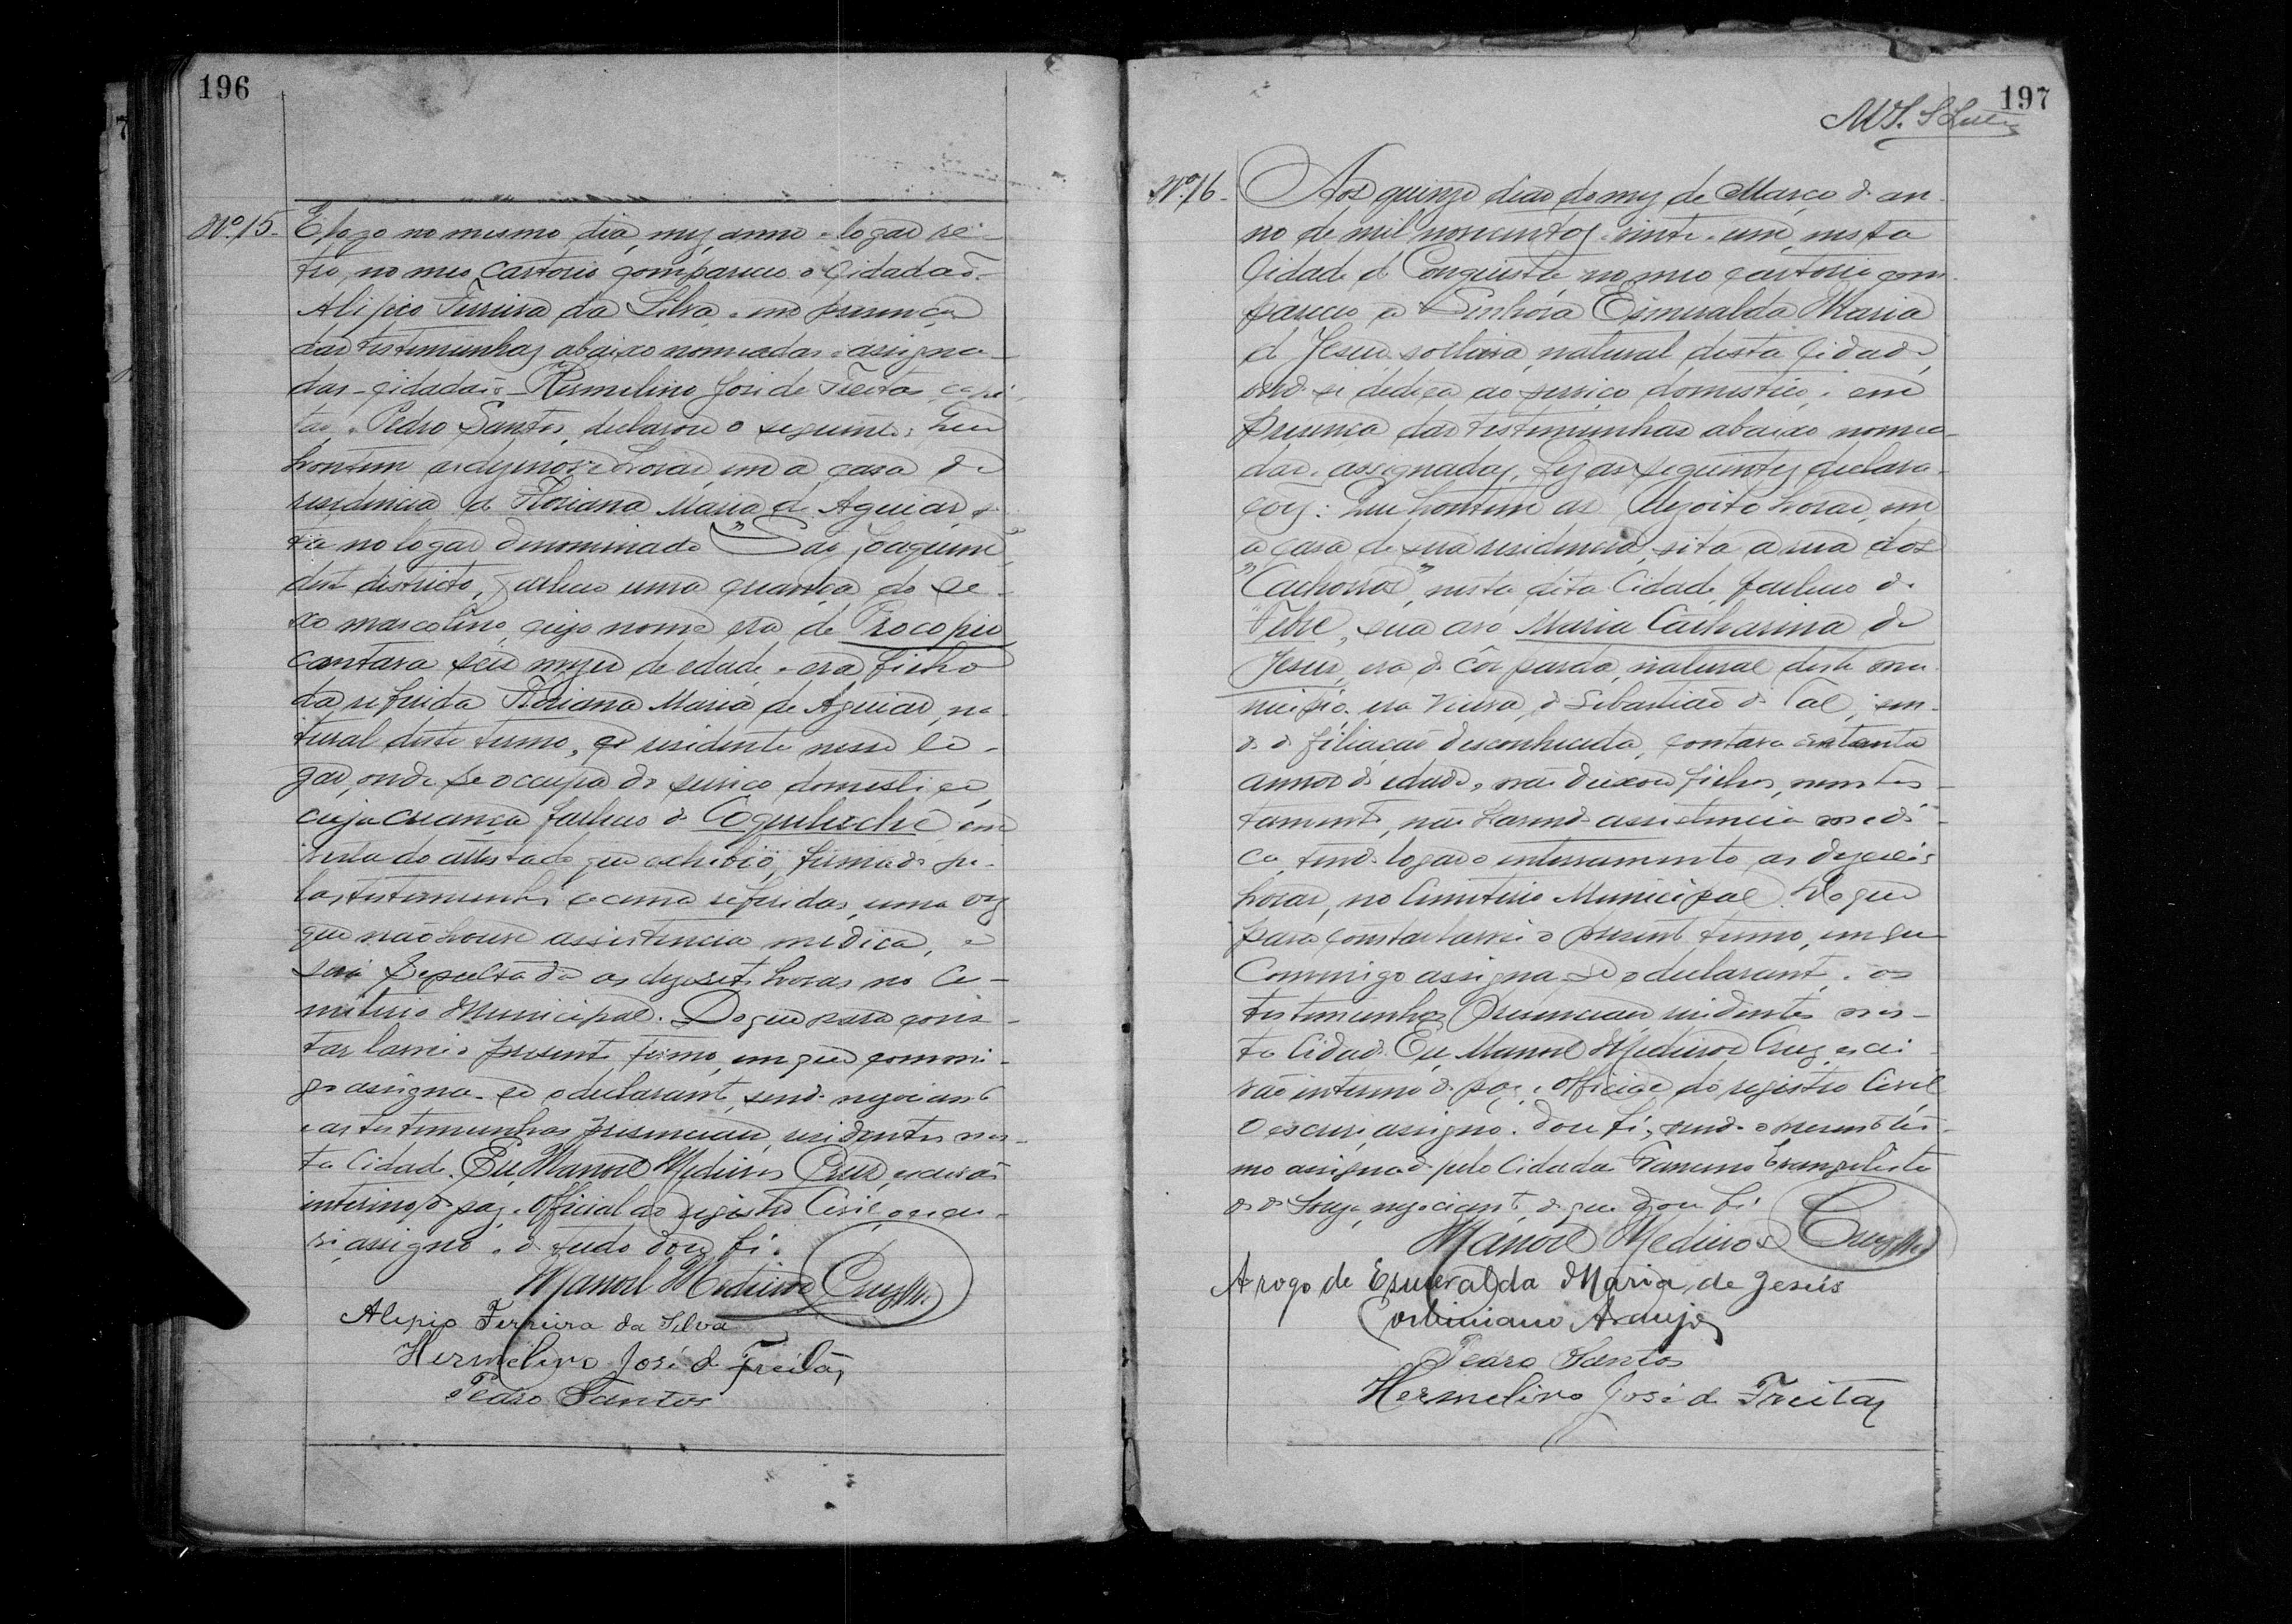 196
Nº 15- E logo no mesmo dia, mez, anno e logar re-
tro, no meu cartorio compareceu o cidadão
Alipio Ferreira da Silva, e em presença
das testemunhas abaixo nomeadas e assigna-
das - cidadãos - Hermelino José de Freitas, capi-
tão e Pedro Santos, declarou o seguinte: Que
hontem as dezenove horas, em a casa de
residencia de Floriana Maria de Aguiar, si-
ta no logar denominado "São Joaquim",
deste districto, falleceu uma creança do se-
xo mascolino, cujo nome era de Procopio
contava seis mezes de edade, e era filho
da referida Floriana Maria de Aguiar, na-
tural deste termo, e residente nesse lo-
gar, onde se occupa do serviço domestico,
cuja creança falleceu de Coqueluche em
vista do attestado que exhibio, firmado pe-
las testemunhas acima referidas, uma vez
que não houve assistencia medica, e
será sepultado as dezesete horas no Ce-
miterio Municipal. Do que para cons-
tar lavrei o presente termo, em que commi-
go assigna-se o declarante, sendo negociante
e as testemunhas presenciaes, residentes nes-
ta Cidade. Eu, Manoel Medeiros Cruz, escrivão
interino de paz e Official do registro Civil, o escre-
vi, assigno e de tudo dou fé.
Manoel Medeiros Cruz
Alipio Ferreira da Silva
Hermelino José de Freitas
Pedro Santos
197
Nº 16- Aos quinze dias do mez de Março do an-
no de mil novecentos e vinte e um, nesta
Cidade de Conquista, no meu cartorio com-
pareceu a Senhora Esmeralda Maria
de Jesus, solteira, natural desta Cidade,
onde se dedica ao serviço domestico, e em
presença das testemunhas abaixo nomea-
das e assignadas, fez as seguintes declara-
ções: Que hontem as dezoito horas, em
a casa de sua residencia, sita a rua dos
"Cachorros", nesta dita Cidade, falleceu de
"Febre", sua avó Maria Catharina de
Jesus, era de côr parda, natural deste mu-
nicipio, era viuva de Sebastião de Tal, sen-
do de filiação desconhecida, contava setenta
annos de edade, não deixou filhos, nem tes-
tamento, não havendo assistencia medi-
ca, tendo logar o enterramento as dezeseis
horas, no Cemiterio Municipal. Do que
para constar lavrei o presente termo, em que
commigo assigna-se o declarante, e as
testemunhas presenciaes residentes nes-
ta Cidade. Eu, Manoel Medeiros Cruz, escri-
vão interino de paz e Official do registro Civil
o escrevi, assigno e dou fé, sendo o presente ter-
mo assignado pelo Cidadão Evangelista
de Souza, negociante, do que dou fé.
Manoel Medeiros Cruz
A rogo de Esmeralda Maria de Jesus
Corbiniano Araujo
Pedro Santos
Hermelino José de Freitas